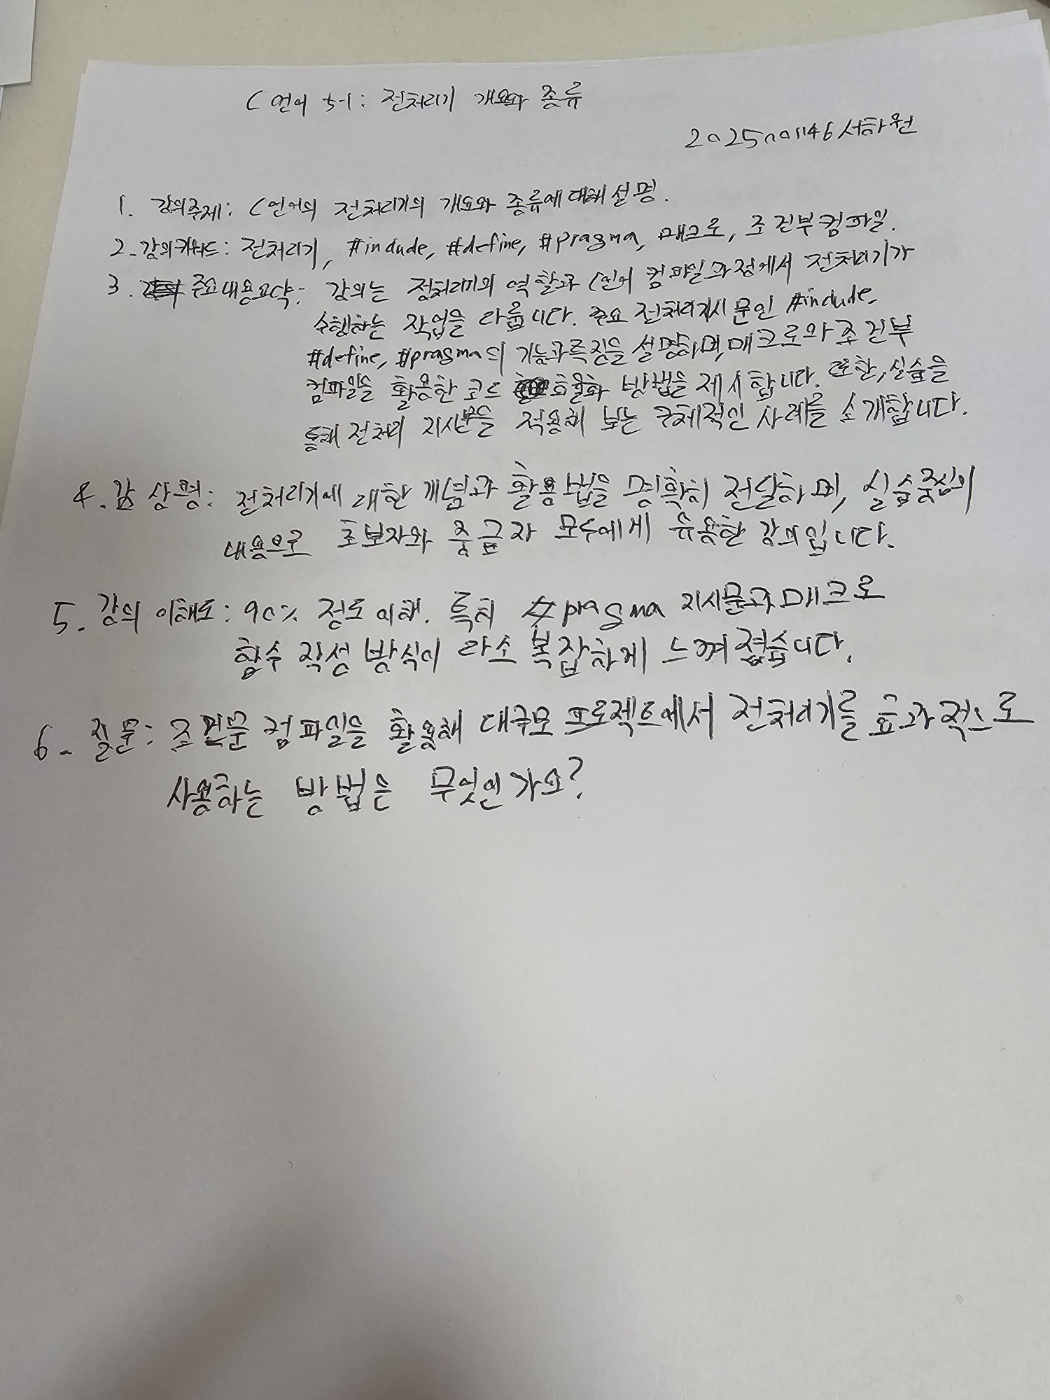 C언어 5-1: 전처리기 개요와 종류
2025001146 서하원
1. 강의주제: C언어의 전처리기의 개요와 종류에 대해 설명.
2. 강의키워드: 전처리기, #include, #define, #pragma, 매크로, 조건부 컴파일.
3. 주요 내용요약: 강의는 전처리기의 역할과 C언어 컴파일 과정에서 전처리기가
수행하는 작업을 다룹니다. 주요 전처리기지시문인 #include,
#define, #pragma의 기능과특징을 설명하며, 매크로와 조건부
컴파일을 활용한 코드 효율화 방법을 제시합니다. 또한, 실습을
통해 전처리 지시문을 적용해 보는 구체적인 사례를 소개합니다.
4. 감상평: 전처리기에 대한 개념과 활용법을 명확히 전달하며, 실습중심의
내용으로 초보자와 중급자 모두에게 유용한 강의입니다.
5. 강의 이해도: 90% 정도 이해. 특히 #pragma 지시문과 매크로
함수 작성 방식이 다소 복잡하게 느껴졌습니다.
6. 질문: 조건문 컴파일을 활용해 대규모 프로젝트에서 전처리기를 효과적으로
사용하는 방법은 무엇인가요?